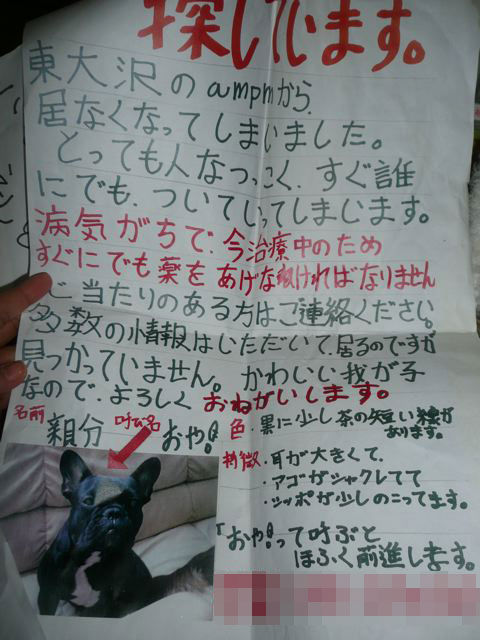 探しています。
東大沢のampmから
居なくなってしまいました。
とっても人なつっこく、すぐ誰
にでも、ついていってしまいます。
病気がちで、今治療中のため
すぐにでも薬をあげなければなりません
ご当たりのある方はご連絡ください。
多数の情報はいただいて、居るのですが
見つかっていません。かわいい我が子
なので、よろしくおねがいします。
名前 親分 呼び名 おや!
色・黒に少し茶の短い
があります。
特徴・耳が大きくて、
・アゴがシャクレてて
・シッポが少しのこってます。
「おや!って呼ぶと
ほふく前進します。